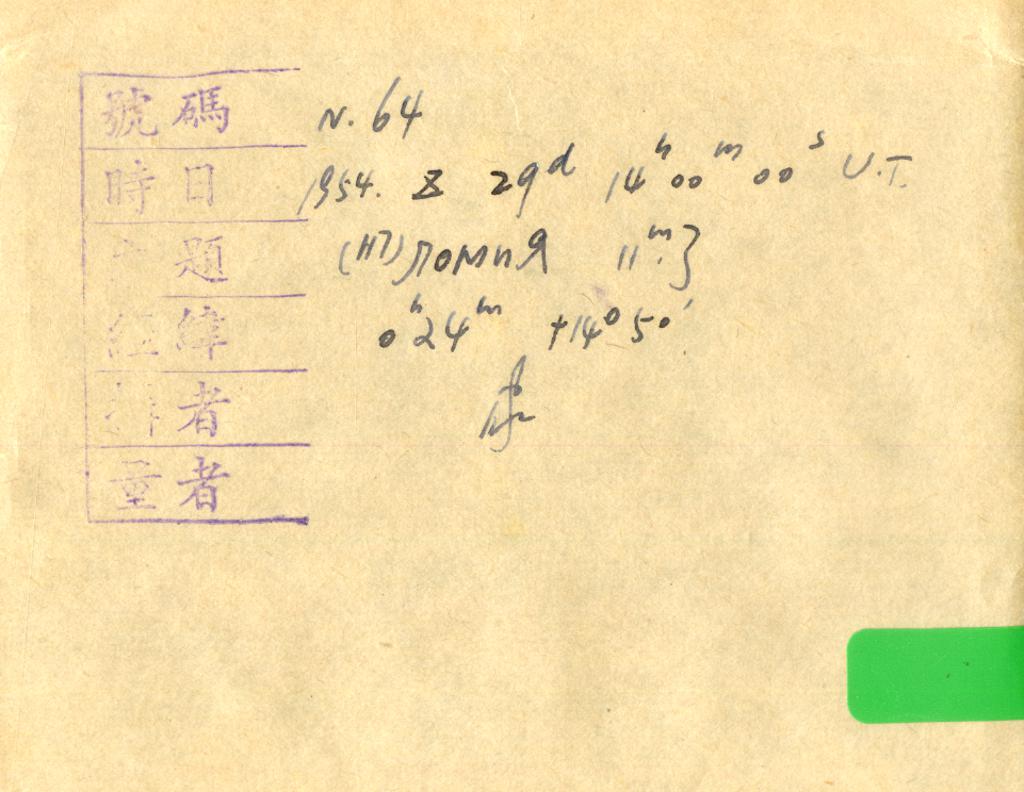 號碼 N. 64
時日 1954. 8 29d 14h 00m 00s U.T.
題 11m.}
經緯 0h24m +14° 50'
者
量者